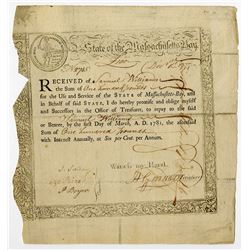 State of the Massachusetts-Bay.
RECEIVED of Samuel Williams
the Sum of One hundred pounds
for the Use and Service of the STATE of Massachusetts-Bay, and
in Behalf of said STATE, I do hereby promise and oblige myself
and Successors in the Office of Treasurer, to repay to the said
Samuel Williams
or Bearer, by the first Day of March, A. D. 1781, the aforesaid
Sum of One hundred Pounds
with Interest Annually, at Six per Cent. per Annum.
Witness my Hand,
Treasurer